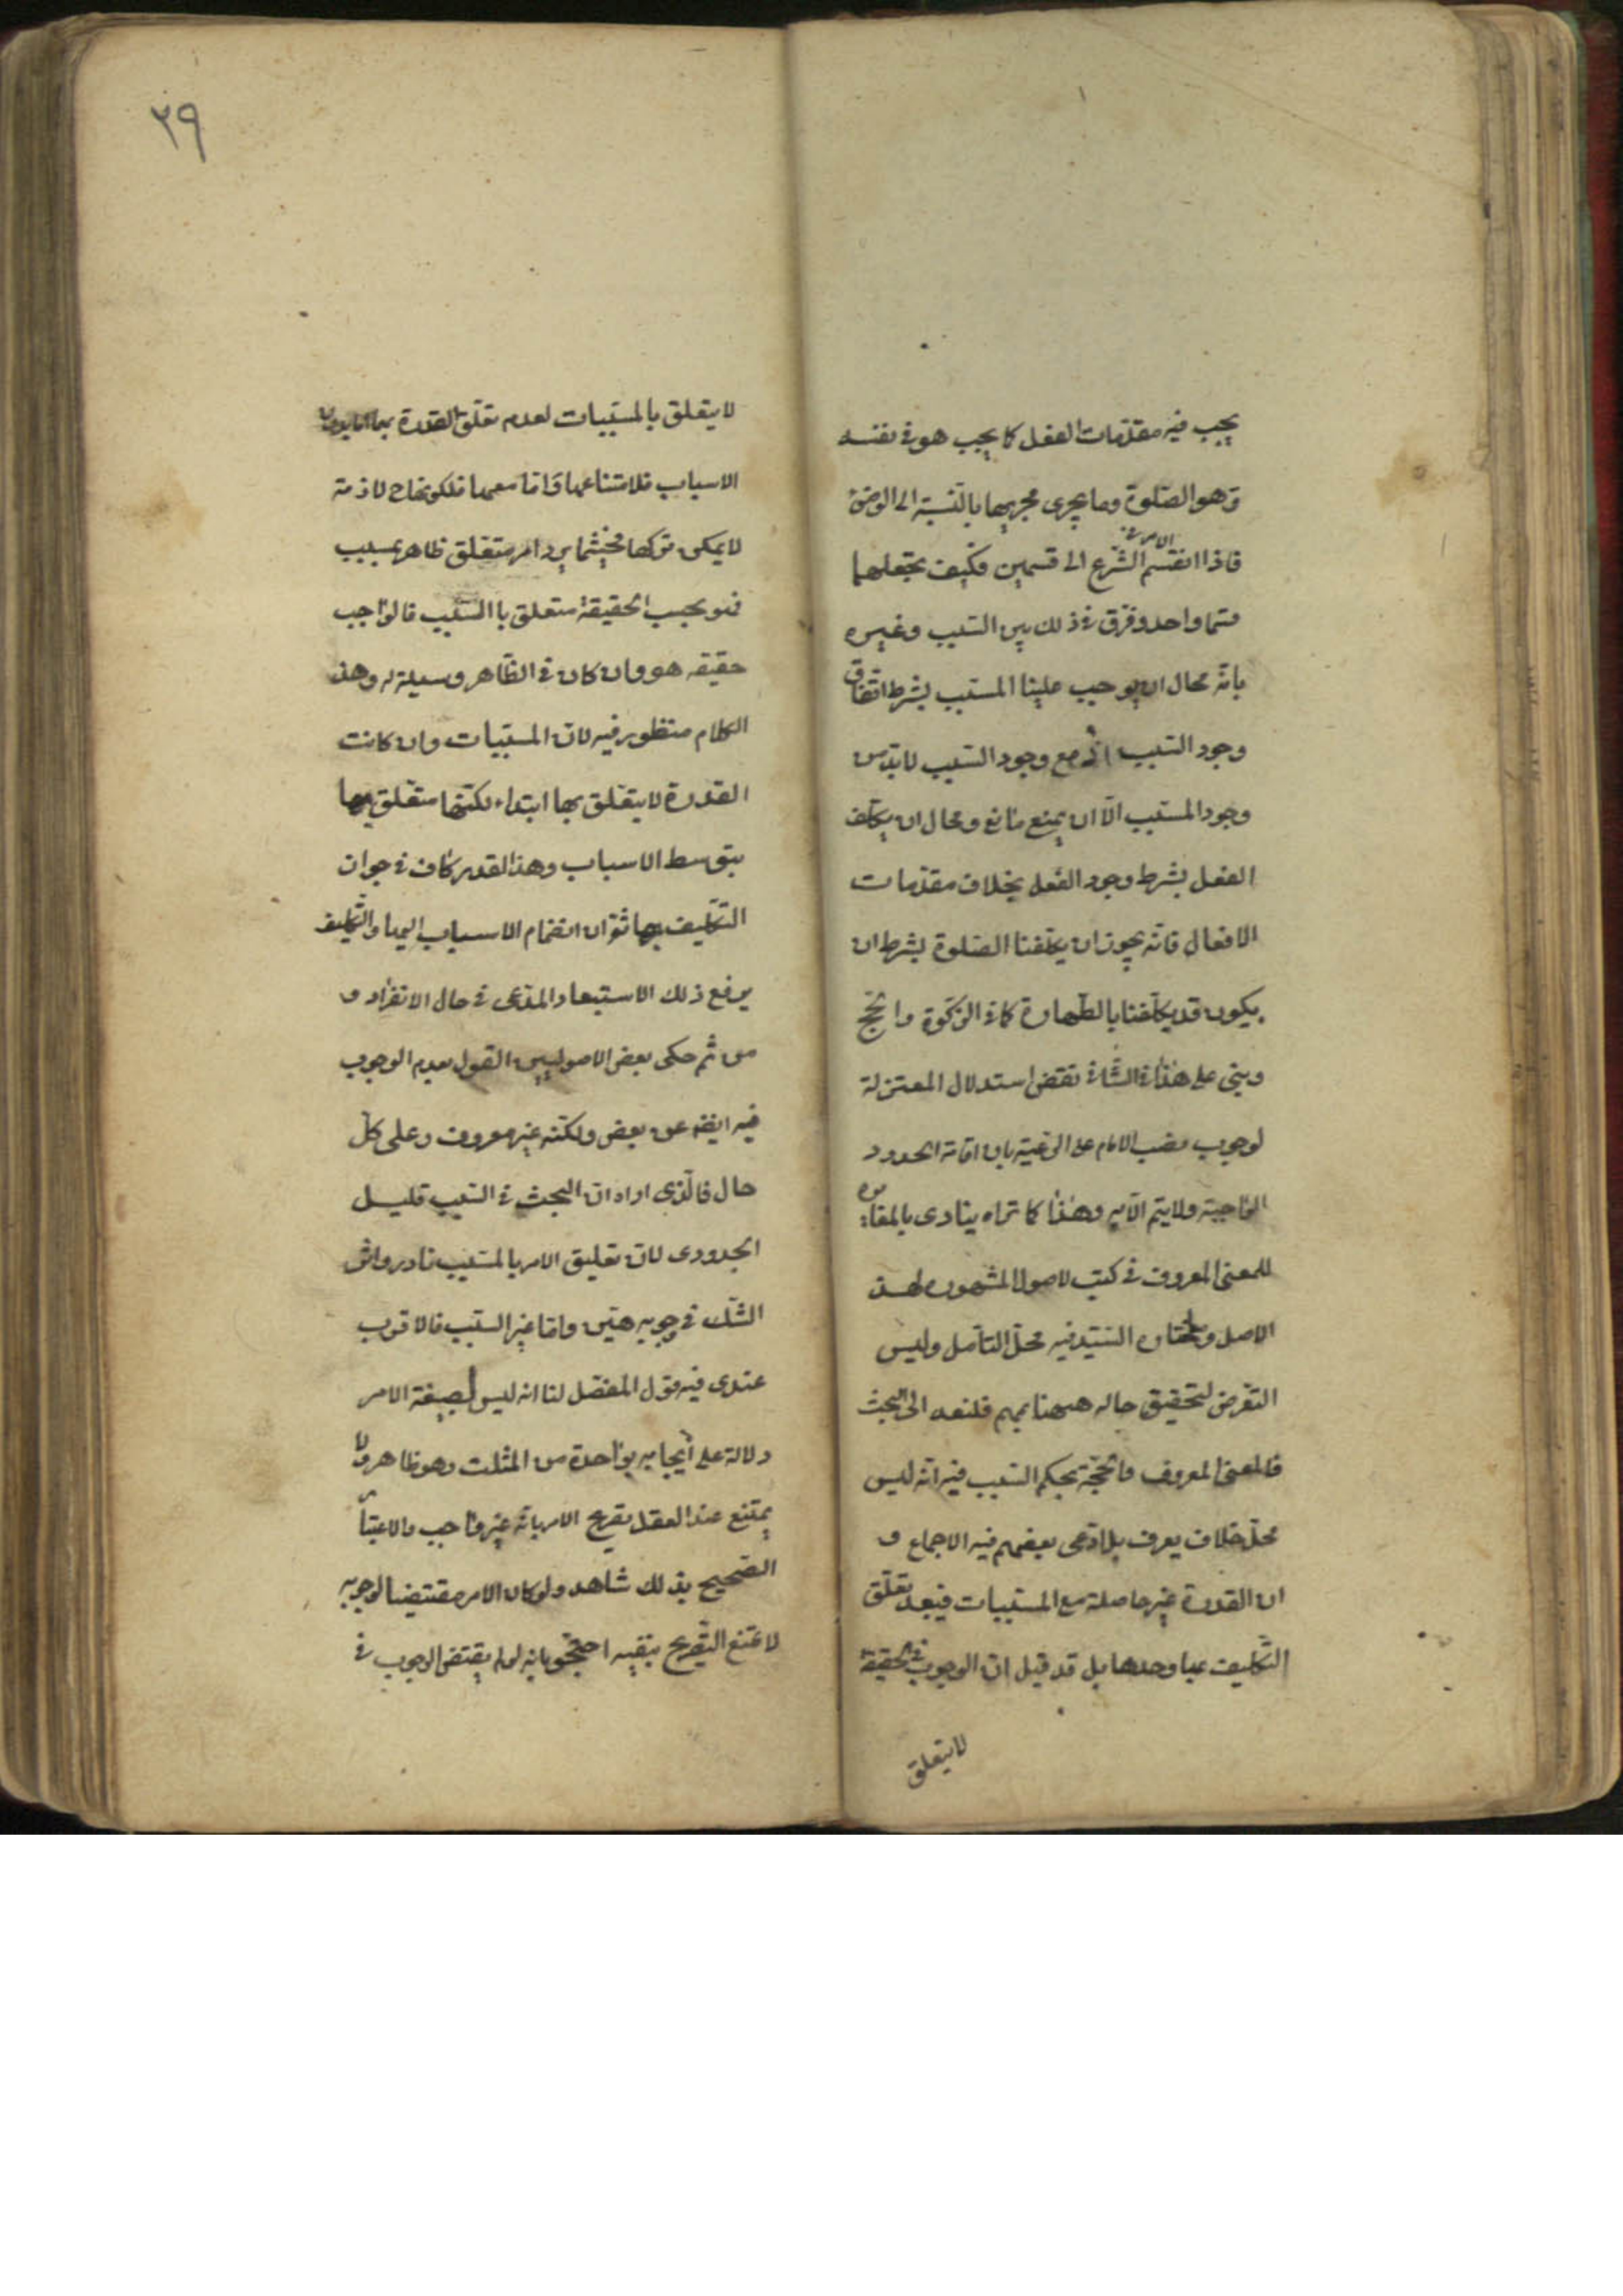 يجب فيه مقدمات الفعل كما يجب هو في نفسه
وهو الصلوة وما يجرى مجريها بالنسبة الى الوضوء
فاذا انقسم الامر في الشرع الى قسمين فكيف نجعلهما
قسما واحد وفرق في ذلك بين السبب وغيره
بانه محال ان يوجب علينا المسبب بشرط اتفاق
وجود السبب اذ مع وجود السبب لابد من
وجود المسبب الا ان يمنع مانع ومحال ان يكلف
الفعل بشرط وجود الفعل بخلاف مقدمات
الافعال فانه يجوز ان يكلفنا الصلوة بشرط ان
يكون قد يكلفنا بالطهارة كما في الزكوة والحج
وبنى على هذا في الشافي نقض استدلال المعتزلة
لوجوب نصب الامام على الرعية بان اقامة الحدود
الواجبة ولا يتم الا به وهذا كما تراه ينادى بالمغايرة
للمعنى المعروف في كتب الاصول المشهورة لهذا
الاصل وما اختاره السيد فيه محل التأمل وليس
التعرض لتحقيق حاله ههنا بمهم فلنعد الى البحث
فالمعنى المعروف والحجة بحكم السبب فيه انه ليس
محل خلاف يعرف بل ادعى بعضهم فيه الاجماع و
ان القدرة غير حاصلة مع المسببات فيبعد تعلق
التكليف بها وحدها بل قد قيل ان الوجوب في الحقيقة
لا يتعلق
٢٩
لا يتعلق بالمسببات لعدم تعلق القدرة بها اما بدون
الاسباب فلامتناعها واما معها فلكونها ح لازمة
لا يمكن تركها فحيثما يرد امر متعلق ظاهر بمسبب
فهو بحسب الحقيقة متعلق با السبب فالواجب
حقيقه هو وان كان في الظاهر وسيلة له وهذا
الكلام منظور فيه لان المسببات وان كانت
القدرة لا يتعلق بها ابتداء لكنها متعلق بها
بتوسط الاسباب وهذا القدر كاف في جواز
التكليف بها ثم ان انضمام الاسباب اليها والتكليف
يرفع ذلك الاستبعاد المدعى في حال الانفراد و
من ثم حكى بعض الاصوليين القول بعدم الوجوب
فيه ايضه عن بعض ولكنه غير معروف وعلى كل
حال فالذي اراه ان البحث في السبب قليل
الجدوى لان تعليق الامر بالمسبب نادر واثر
الشك في وجوبه هين واما غير السبب فالاقرب
عندى فيه قول المفصل لنا انه ليس لصيغة الامر
دلالة على ايجابه بواحدة من الثلث وهو ظاهر ولا
يمتنع عند العقل تصريح الامر بانه غير واجب والاعتبار
الصحيح بذلك شاهد ولو كان الامر مقتضيا لوجوبه
لامتنع التصريح بنفيه احتجوا بانه لو لم يقتض الوجوب في